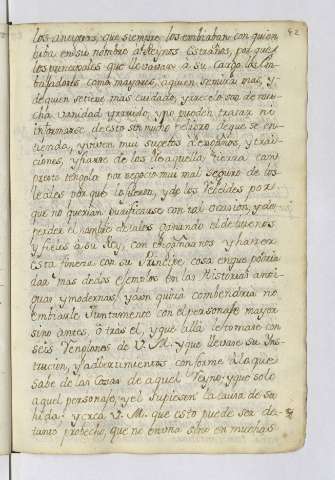 los anuytas, que siempre los embiaban con quien
iuba en su nombre a Reynos estraños, por que
los principales que llevaran a su cargo las em
baxadores como mayores, a quien se mira mas, y
de quien se tiene mas cuidado, y rrecelo son de mu
cha vanidad y rruido, y no pueden tratar ni
informarse de esto sin mucho peligro de que se en
tienda, y viven muy sugetos a engaños, y trai
ciones, y fiarse de los de aquella tierra tan
presto tengola por negocio muy mal seguro de los
leales por que lo seran, y de los rebeldes por
que no querran purificarse con tal ocasion, y de
perder el nombre de tales ganando el de buenos
y fieles a su Rey, con engañarnos y hazer
esta fineza con su Principe cosa en que podria
dar mas de dos exemplos en las Historias anti
guas y modernas, y aun quiza combendria no
embiarle Juntamente con el personaje mayor
sino antes, ò tras el, y que alla le tomase con
seis renglones de V. M. y que llevase su Ins
truccion, y advertimientos conforme à lo que
sabe de las cosas de aquel Reyno, y que solo
aquel personaje, y el supiesen la causa de su
hida: y crea V. M. que esto puede ser de
tanto probecho, que no en una sino en muchas